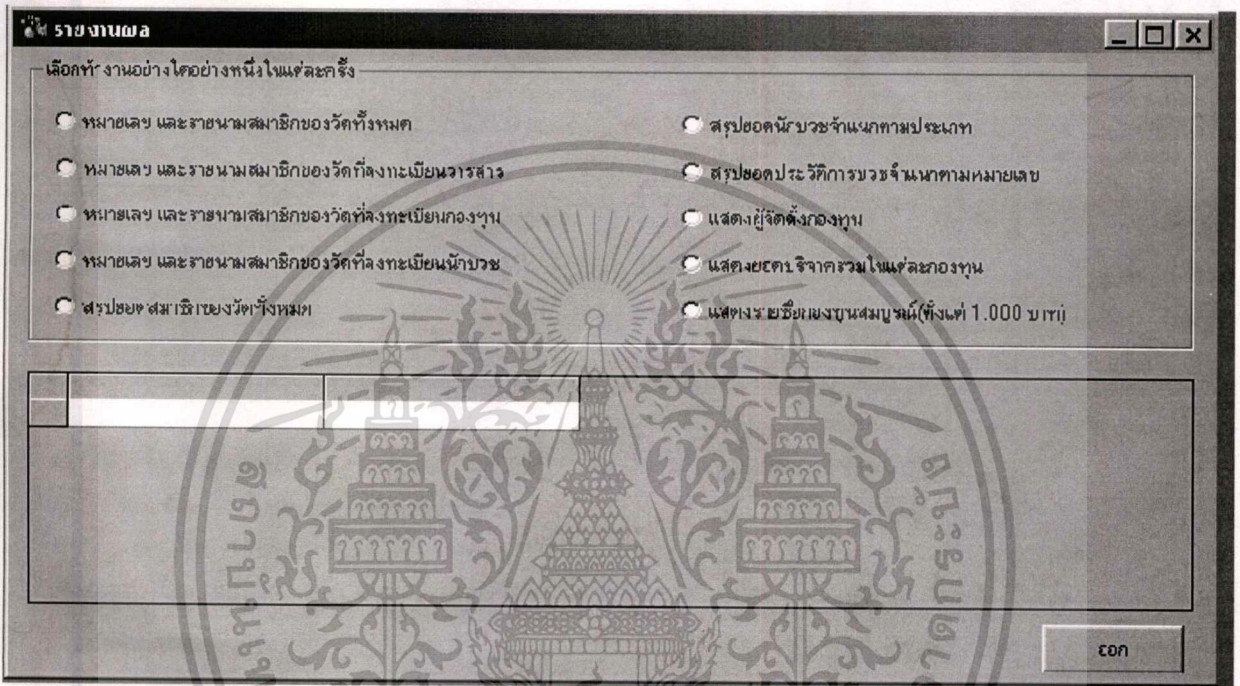 รายงานผล
เลือกทำงานอย่างใดอย่างหนึ่งในแต่ละครั้ง
หมายเลข และรายนามสมาชิกของวัดทั้งหมด
หมายเลข และรายนามสมาชิกของวัดที่ลงทะเบียนวารสาร
หมายเลข และรายนามสมาชิกของวัดที่ลงทะเบียนกองทุน
หมายเลข และรายนามสมาชิกของวัดที่ลงทะเบียนนักบวช
สรุปยอดสมาชิกของวัดทั้งหมด
สรุปยอดนักบวชจำแนกตามประเภท
สรุปยอดประวัติการบวชจำแนกตามหมายเลข
แสดงผู้จัดตั้งกองทุน
แสดงยอดบริจาครวมในแต่ละกองทุน
แสดงรายชื่อกองทุนสมบูรณ์(ตั้งแต่ 1.000 บาท)
ออก